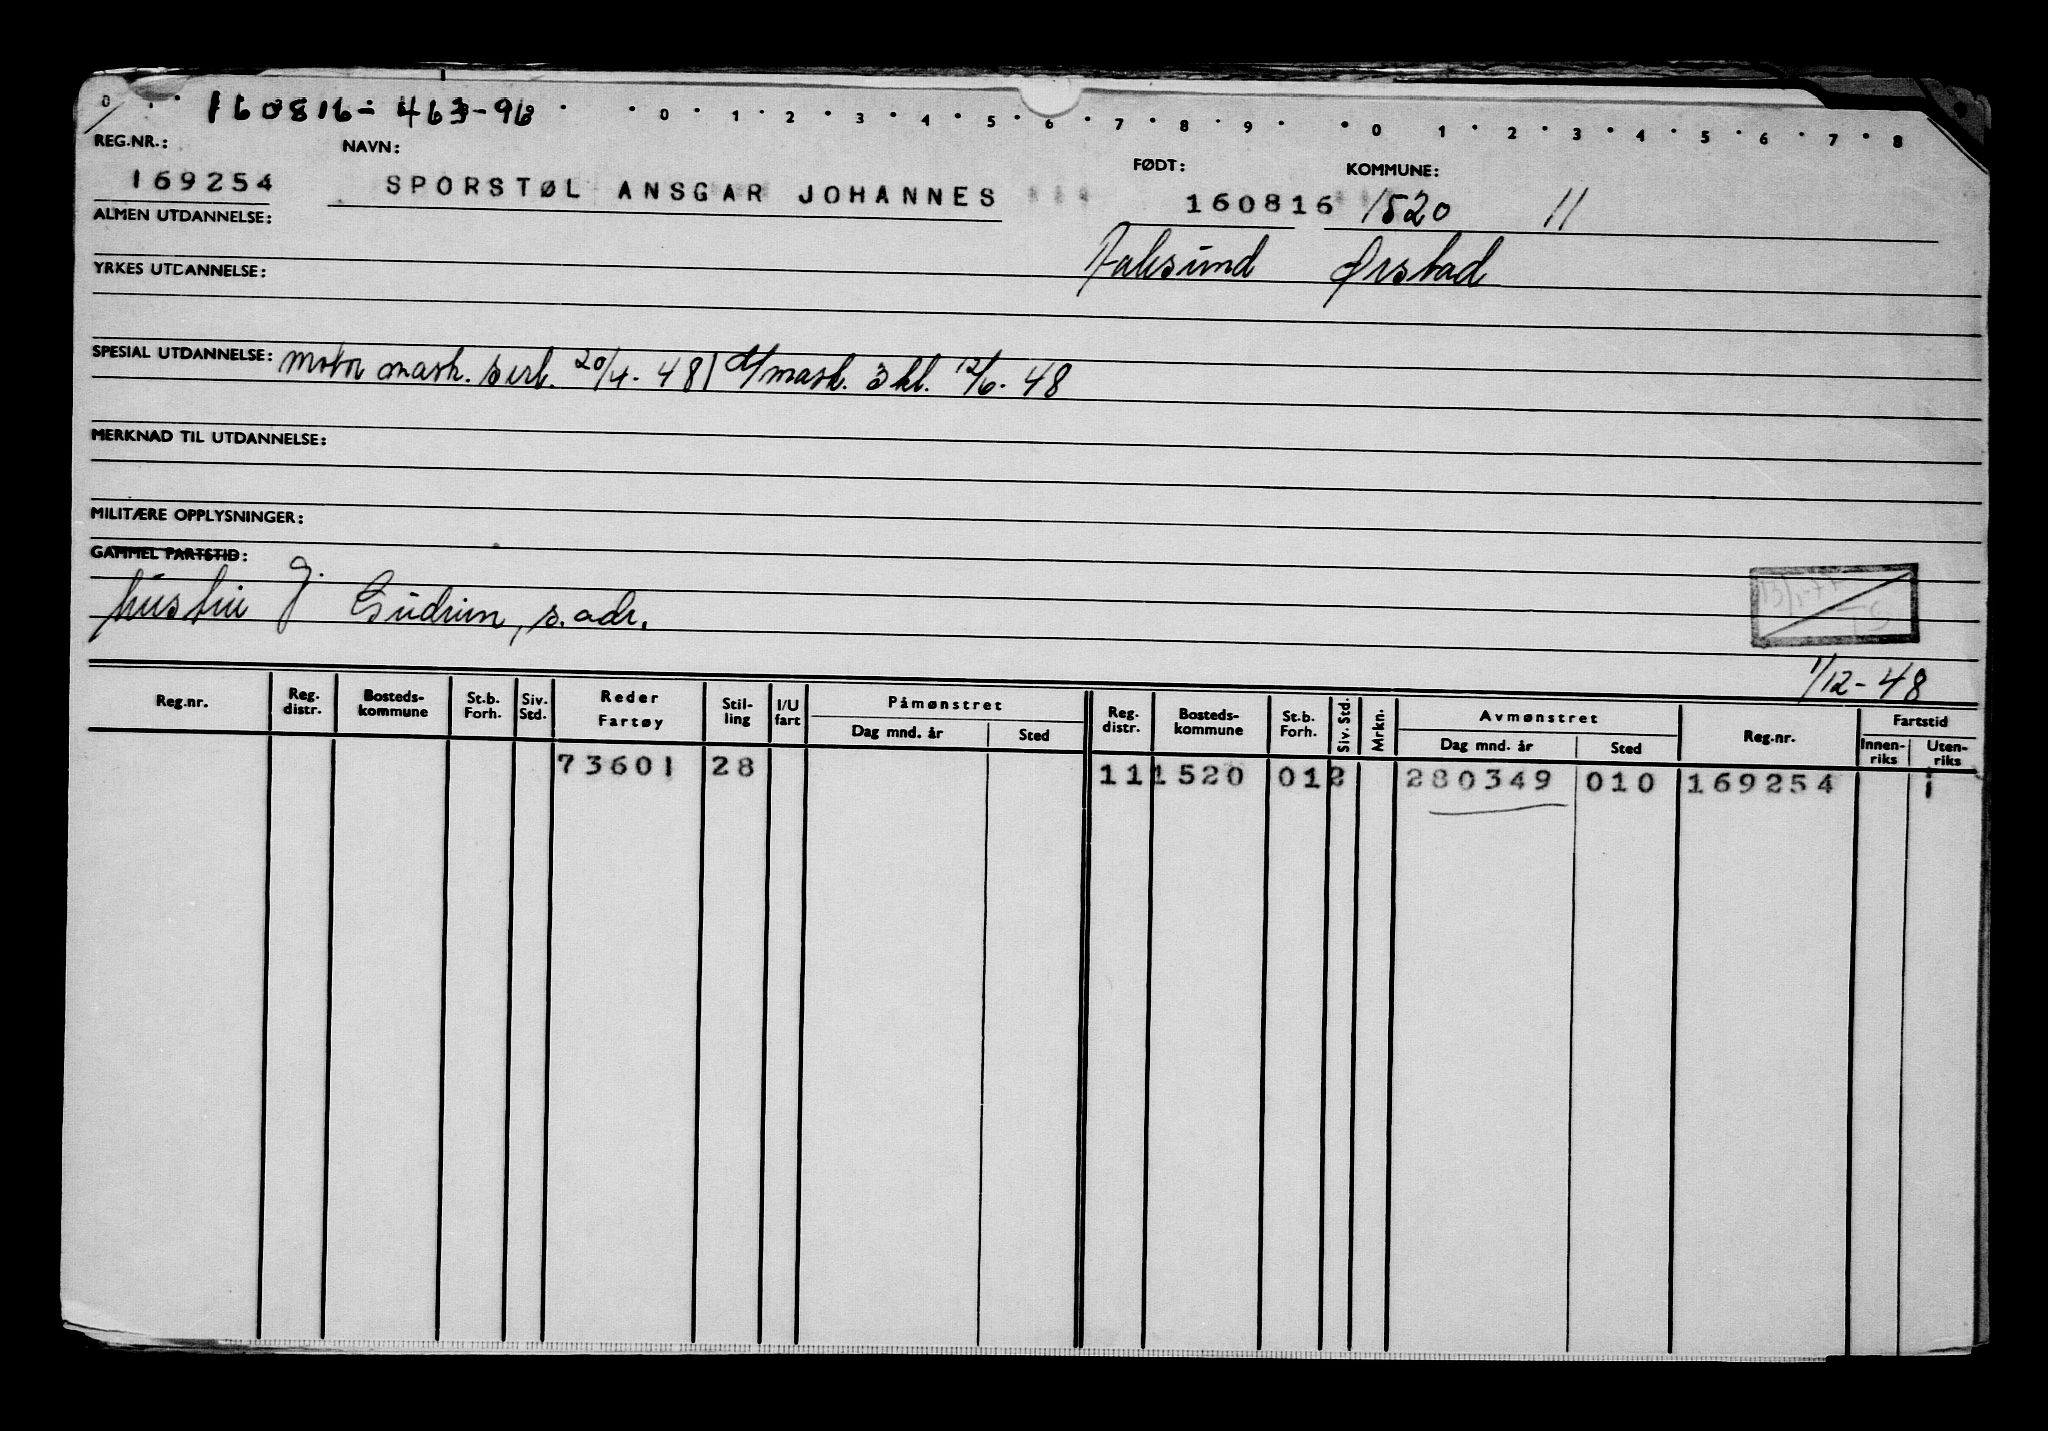 160816 - 463-96
0 1 2 3 4 5 6 7 8 9 0 1 2 3 4 5 6 7 8
REG.NR.: NAVN: FØDT: KOMMUNE:
169254 SPORSTØL ANSGAR JOHANNES 160816 1520 11
ALMEN UTDANNELSE:
Aalesund Ørstad
YRKES UTDANNELSE:
SPESIAL UTDANNELSE: motor mask. sert. 20/4-48 mask. 3 kl. 12/6-48
MERKNAD TIL UTDANNELSE:
MILITÆRE OPPLYSNINGER:
GAMMEL FARTSTID:
hustru G. Gudrun, s. adr.
1/12-48
Reg.nr. Reg. distr. Bosteds-kommune St.b. Forh. Siv. Std. Reder Fartøy Stil-ling I/U fart Påmønstret Reg. distr. Bosteds-kommune St.b. Forh. Siv. Std. Mrkn. Avmønstret Reg.nr. Fartstid
Dag mnd. år Sted Dag mnd. år Sted Innen-riks Uten-riks
73601 28 11 1520 01 2 280349 010 169254 1